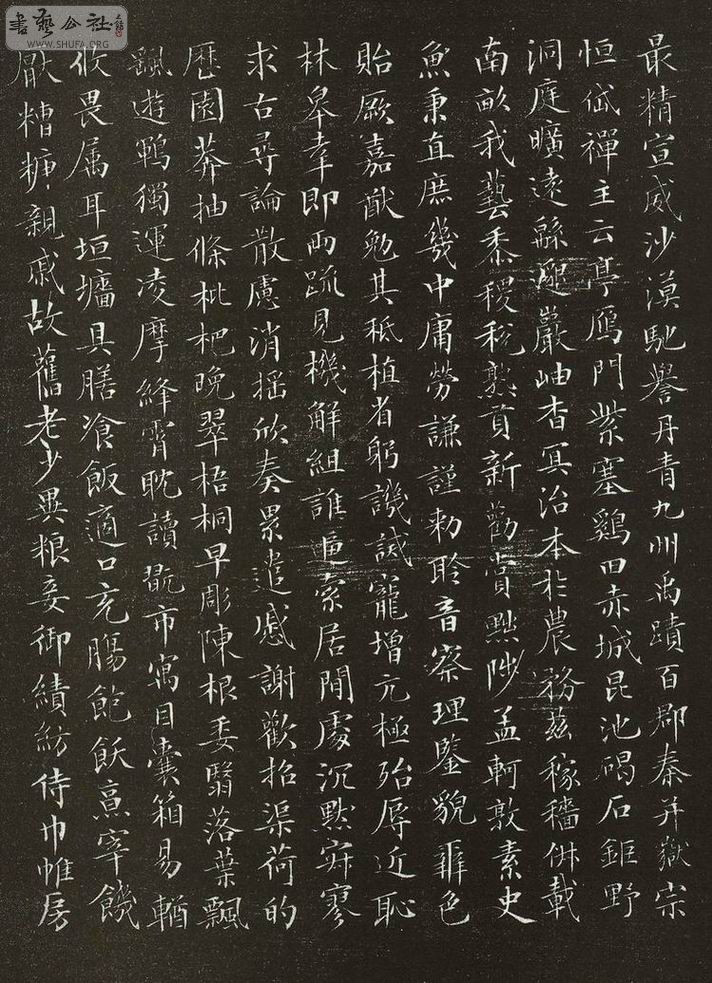 書藝公社
WWW.SHUFA.ORG
最精宣威沙漠馳譽丹青九州禹蹟百郡秦并嶽宗
恒岱禪主云亭鴈門紫塞鷄田赤城昆池碣石鉅野
洞庭曠遠緜邈巖岫杳冥治本於農務茲稼穡俶載
南畝我藝黍稷稅熟貢新勸賞黜陟孟軻敦素史
魚秉直庶幾中庸勞謙謹勑聆音察理鑒貌辨色
貽厥嘉猷勉其祗植省躬譏誡寵增亢極殆辱近恥
林皋幸即兩疏見機解組誰逼索居閒處沉默寂寥
求古尋論散慮消搖欣奏累遣慼謝歡招渠荷的
歷園莽抽條枇杷晚翠梧桐早彫陳根委翳落葉飄
颻遊鵾獨運凌摩絳霄耽讀翫市寓目囊箱易輶
攸畏属耳垣墻具膳飡飯適口充腸飽飫烹宰饑
厭糟糠親戚故舊老少異粮妾御績紡侍巾帷房